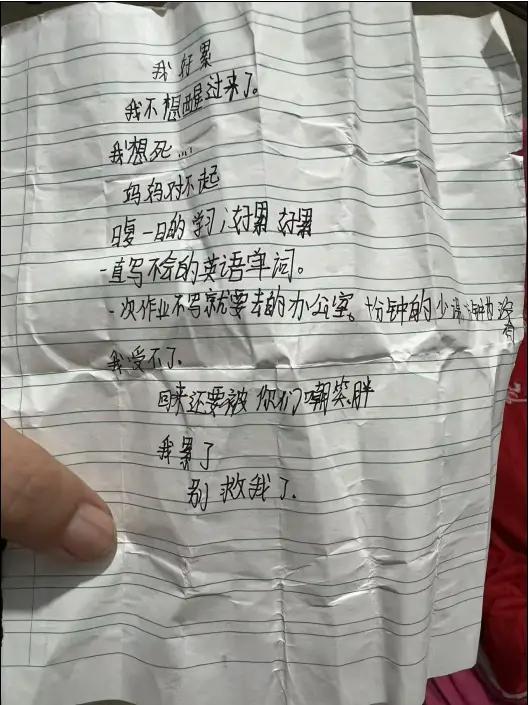 我好累
我不想醒过来了。
我想死...
妈妈对不起
日复一日的学习,好累 好累
一直写不会的英语单词。
一次作业不写就要去的办公室。十分钟的少课 钟为没有
我受不了.
回来还要被 你们嘲笑胖
我累了
别 救我了.